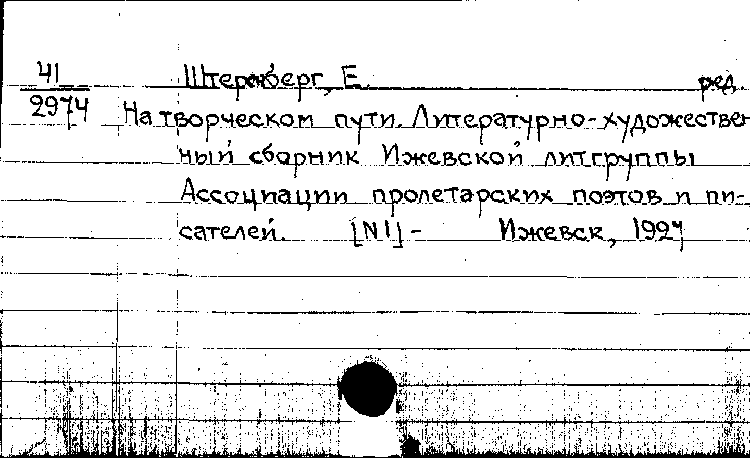 41 Штернберг, Е. ред.
2974 На творческом пути. Литературно-художествен
ный сборник Ижевской литгруппы
Ассоциации пролетарских поэтов и пи-
сателей. [N 1] - Ижевск, 1927